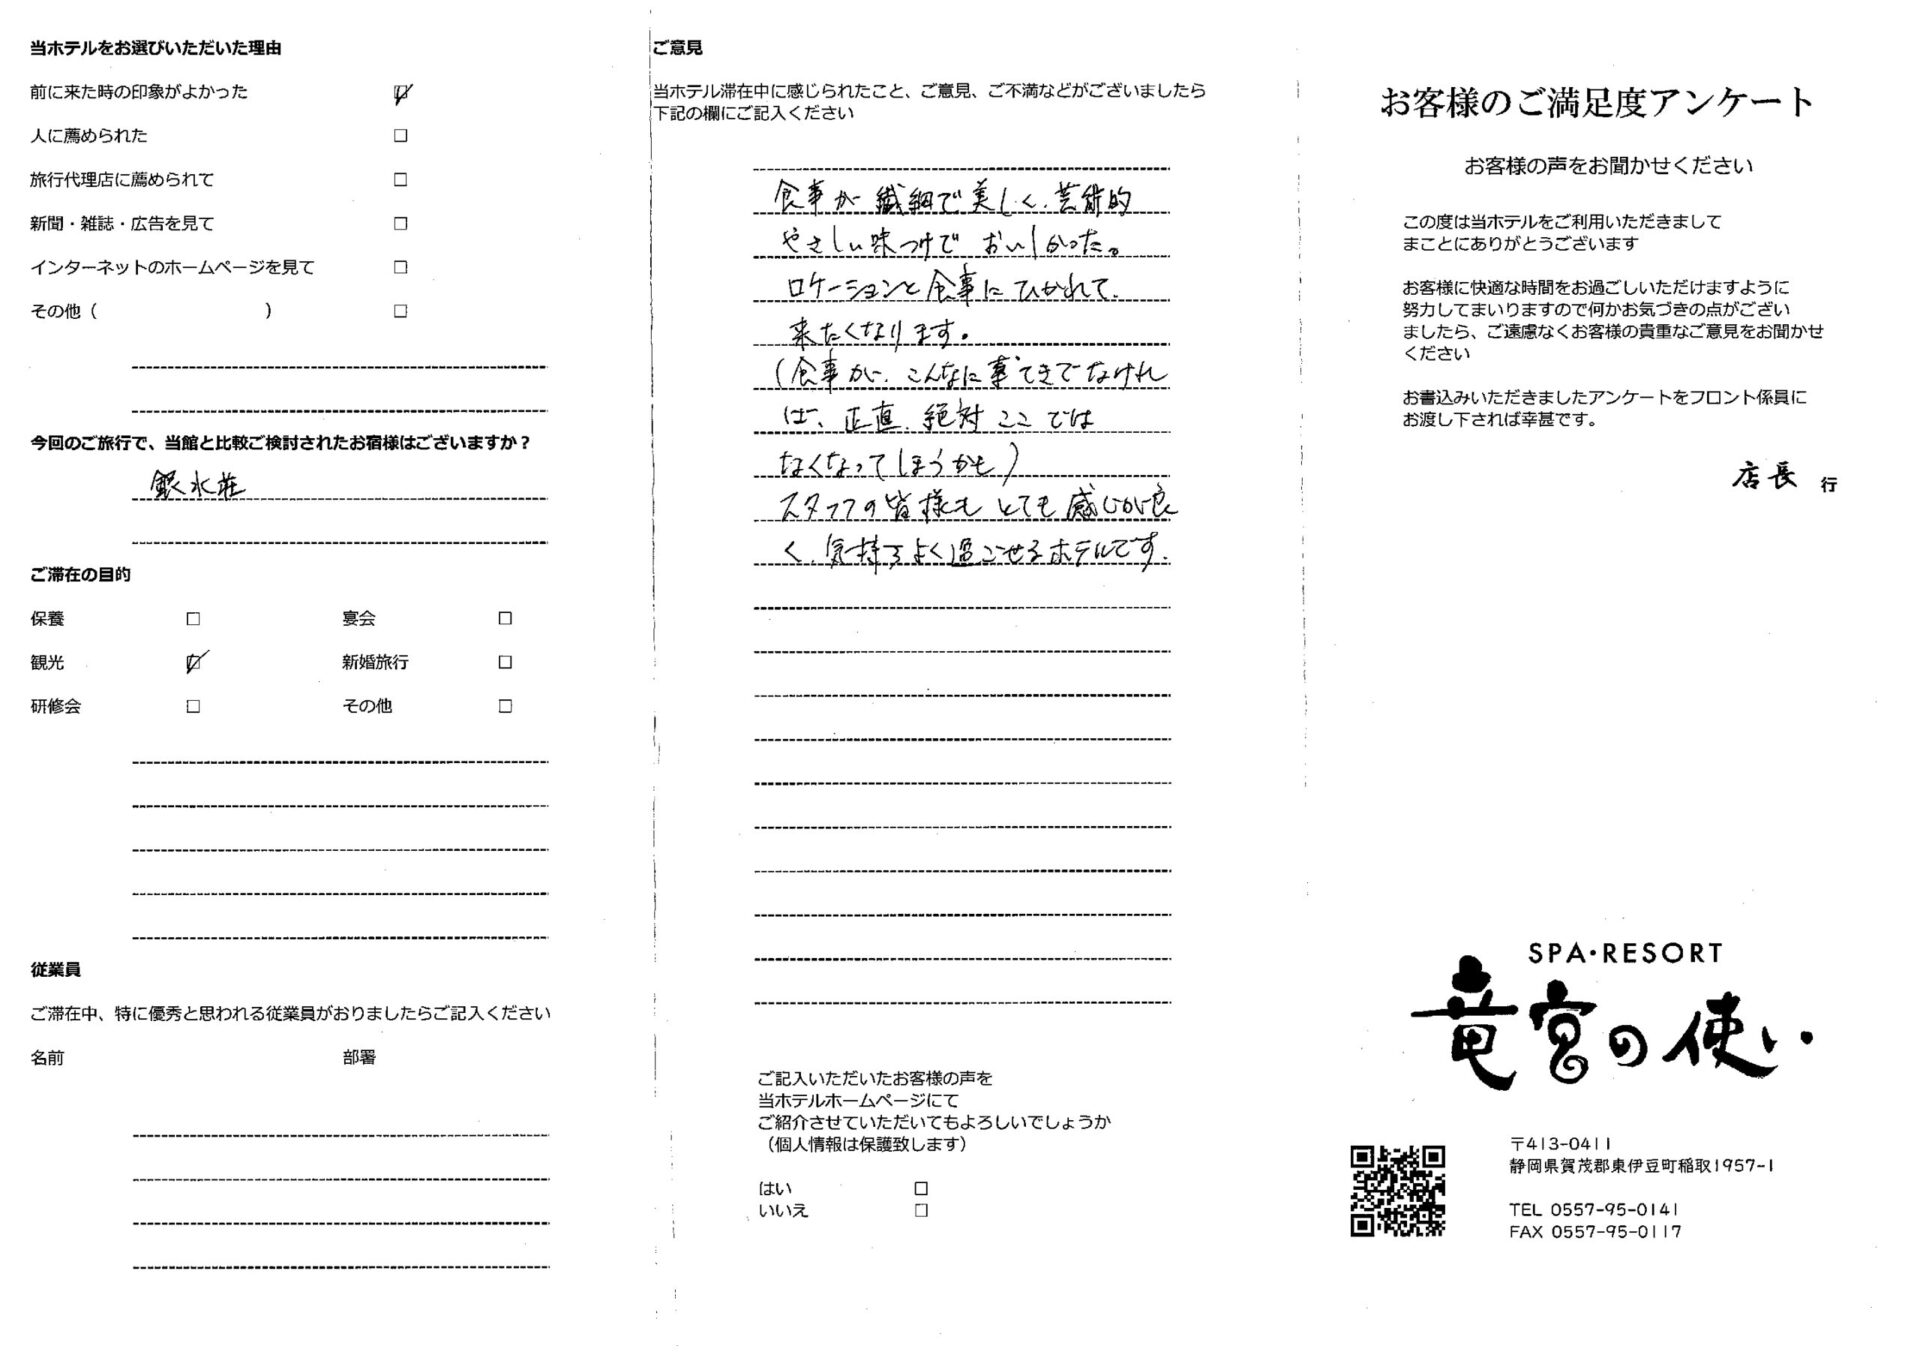 当ホテルをお選びいただいた理由
前に来た時の印象がよかった
人に薦められた □
旅行代理店に薦められて □
新聞・雑誌・広告を見て □
インターネットのホームページを見て □
その他 ( ) □
今回のご旅行で、当館と比較ご検討されたお宿様はございますか？
銀水荘
ご滞在の目的
保養 □ 宴会 □
観光 新婚旅行 □
研修会 □ その他 □
従業員
ご滞在中、特に優秀と思われる従業員がおりましたらご記入ください
名前 部署
ご意見
当ホテル滞在中に感じられたこと、ご意見、ご不満などがございましたら
下記の欄にご記入ください
食事が繊細で美しく、芸術的
やさしい味つけでおいしかった。
ロケーションと食事にひかれて、
来たくなります。
(食事が、こんなに素てきでなけれ
ば、正直、絶対ここでは
なくなってしまうかも)
スタッフの皆様もとても感じが良
く、気持ちよく過ごせるホテルです。
ご記入いただいたお客様の声を
当ホテルホームページにて
ご紹介させていただいてもよろしいでしょうか
（個人情報は保護致します）
はい □
いいえ □
お客様のご満足度アンケート
お客様の声をお聞かせください
この度は当ホテルをご利用いただきまして
まことにありがとうございます
お客様に快適な時間をお過ごしいただけますように
努力してまいりますので何かお気づきの点がござい
ましたら、ご遠慮なくお客様の貴重なご意見をお聞かせ
ください
お書込みいただきましたアンケートをフロント係員に
お渡し下されば幸甚です。
店長 行
SPA・RESORT
竜宮の使い
〒413-0411
静岡県賀茂郡東伊豆町稲取1957-1
TEL 0557-95-0141
FAX 0557-95-0117